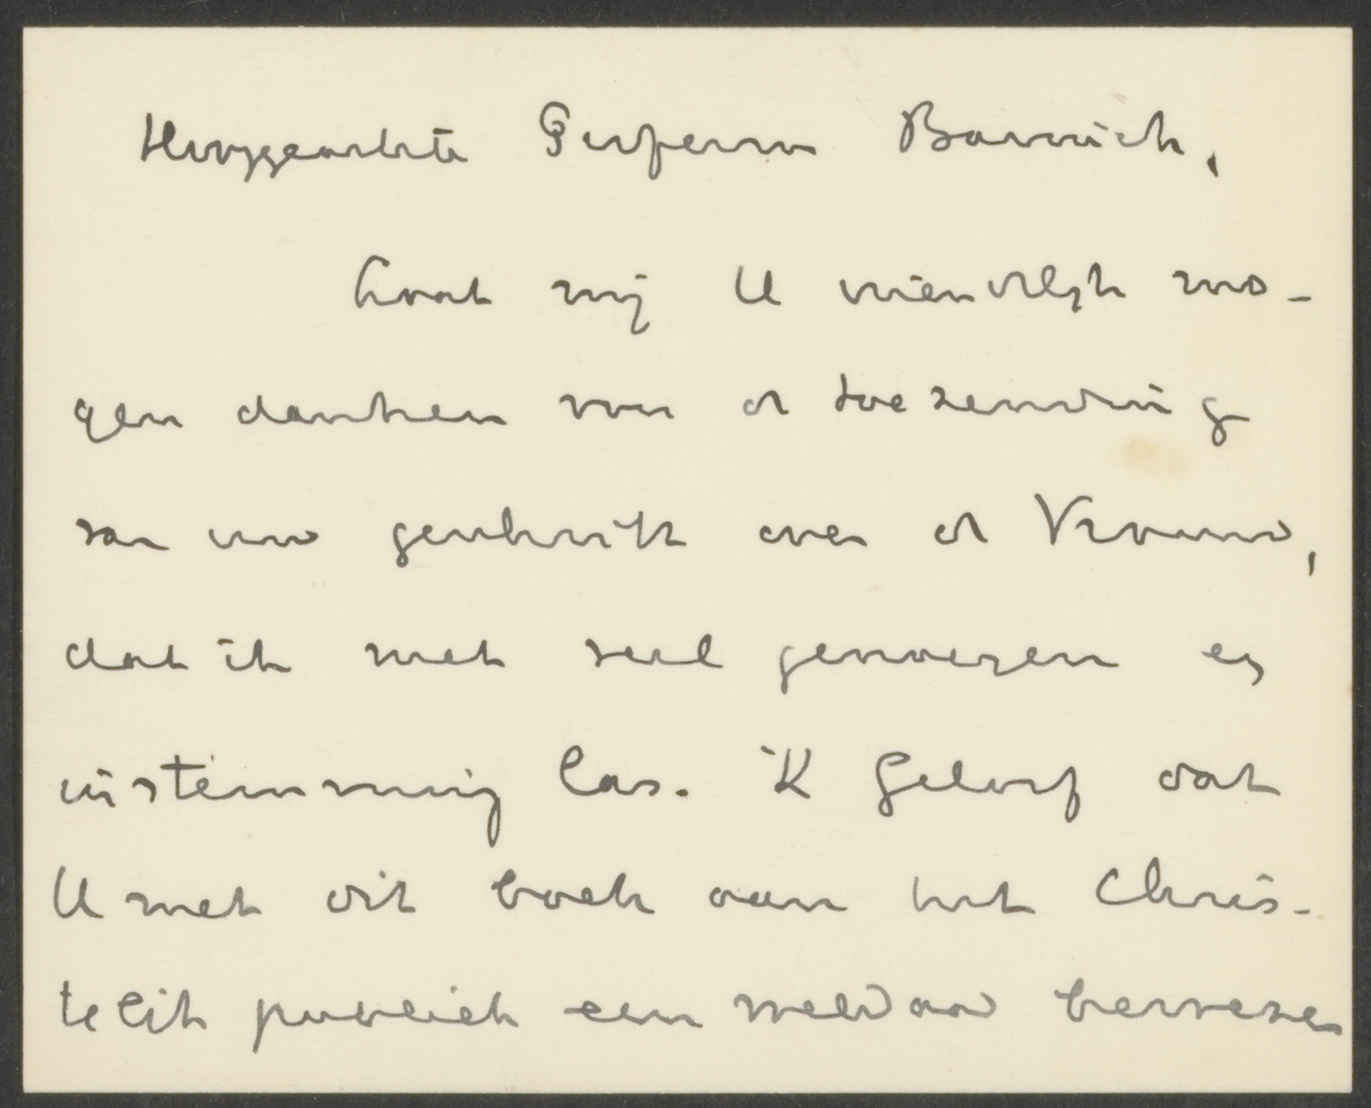 Hooggeachte Professor Bavinck,
Laat mij U vriendelijk mo-
gen danken voor de toezending
van uw geschrift over de Vrouw,
dat ik met veel genoegen en
instemming las. Ik geloof dat
U met dit boek aan het Chris-
telijk publiek een weldaad bewezen